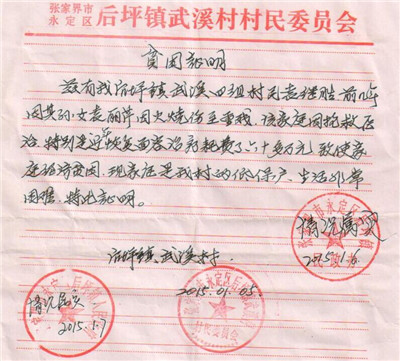 张家界市
永定区 后坪镇武溪村村民委员会
贫困证明
兹有我后坪镇武溪四组村民袁继胜前几年
因其的女袁丽萍因火烧伤 该家庭因抢救医
治,特别是 恢复面容治疗耗费了六十多万元,致使家
庭经济贫困,现家庭是我村的低保户,生活非常
困难,特此证明。
后坪镇武溪村
情况属实
2015.1.6
2015.01.05
村民委员会
情况属实
2015.1.7